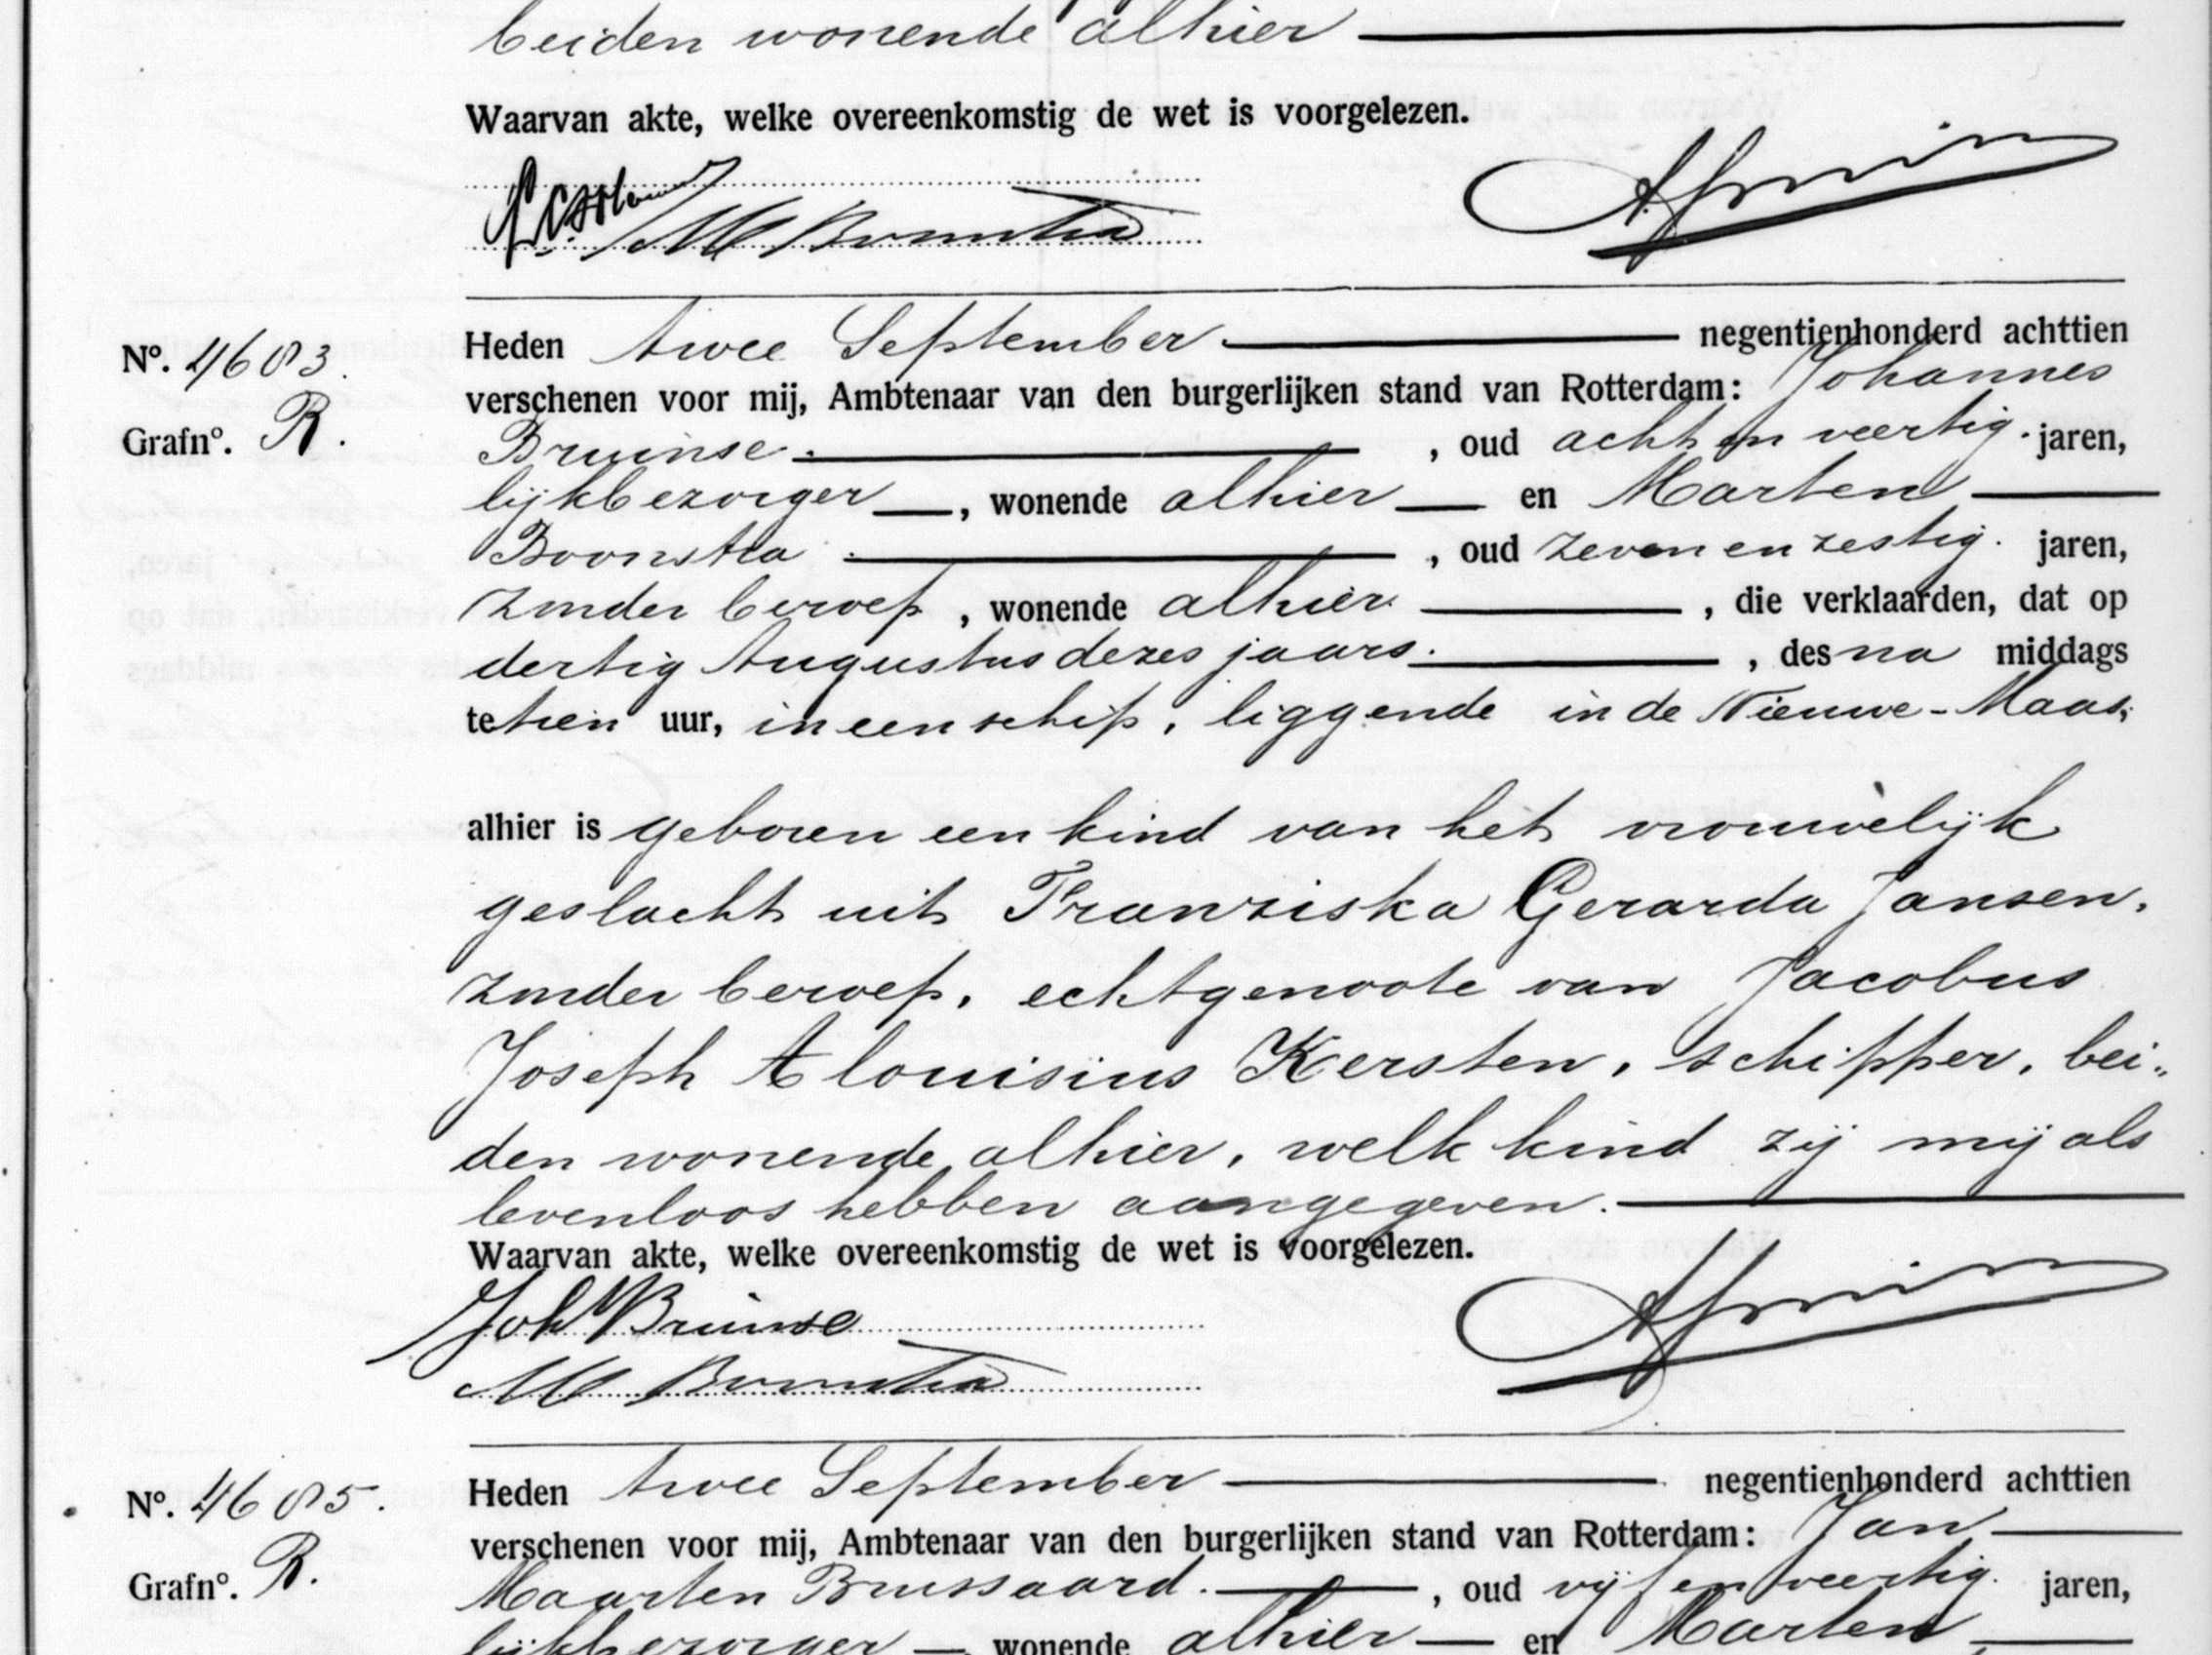 beiden wonende alhier
Waarvan akte, welke overeenkomstig de wet is voorgelezen.
M Boonstra
Nº. 4683.
Grafnº. R.
Heden twee September negentienhonderd achttien
verschenen voor mij, Ambtenaar van den burgerlijken stand van Rotterdam: Johannes
Bruinse, oud acht en veertig jaren,
lijkbezorger, wonende alhier en Marten
Boonstra, oud zeven en zestig jaren,
zonder beroep, wonende alhier, die verklaarden, dat op
dertig Augustus dezes jaars, des na middags
te tien uur, in een schip, liggende in de Nieuwe-Maas,
alhier is geboren een kind van het vrouwelijk
geslacht uit Franziska Gerarda Jansen,
zonder beroep, echtgenoote van Jacobus
Joseph Alouisius Kersten, schipper, bei„
den wonende alhier, welk kind zij mij als
levenloos hebben aangegeven.
Waarvan akte, welke overeenkomstig de wet is voorgelezen.
Joh Bruinse
M Boonstra
Nº. 4685.
Grafnº. R.
Heden twee September negentienhonderd achttien
verschenen voor mij, Ambtenaar van den burgerlijken stand van Rotterdam: Jan
Maarten Brussaard, oud vijf en veertig jaren,
lijkbezorger wonende alhier en Marten